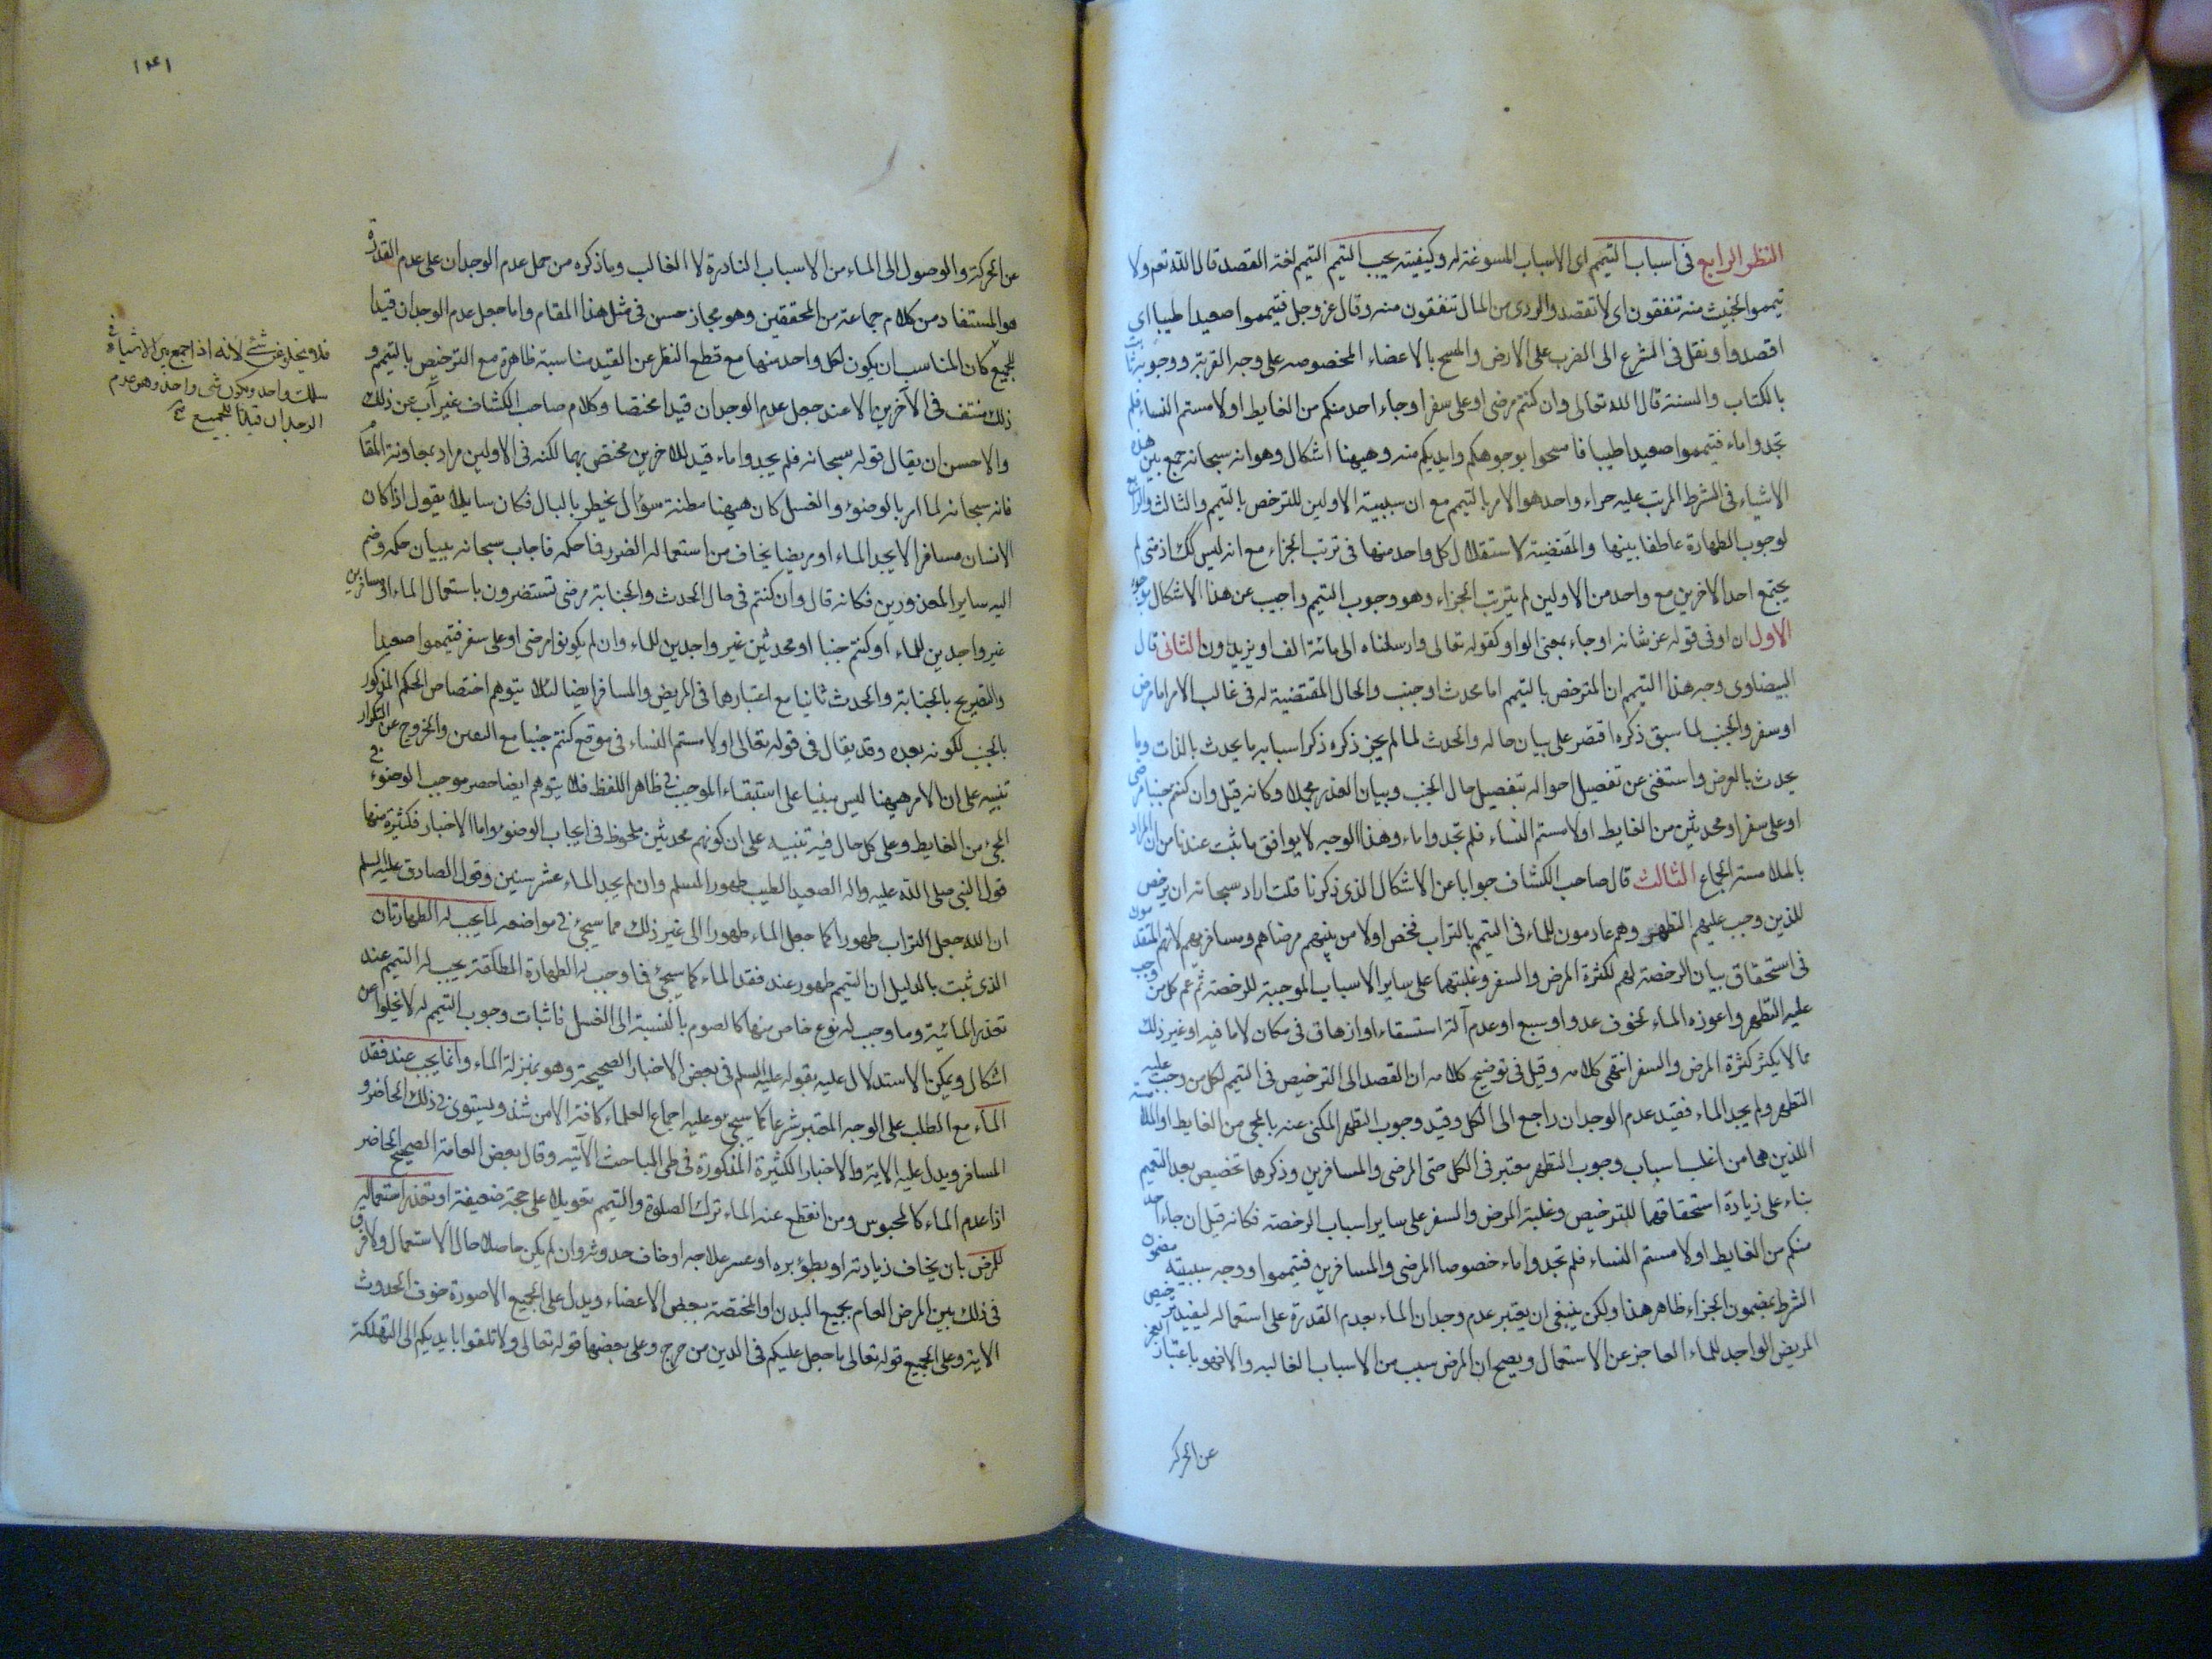 النظر الرابع فى اسباب التيمم اى الاسباب المسوغة له وكيفيته يجب التيمم التيمم لغة القصد قال الله تعم ولا
تيمموا الخبيث منه تنفقون اى لا تقصدوا الردى من المال تنفقون منه وقال عز وجل فتيمموا صعيدا طيبا اى
اقصدوا ونقل فى الشرع الى الضرب على الارض والمسح بالاعضاء المخصوصه على وجه القربة ووجوبه ثابت
بالكتاب والسنة قال الله تعالى وان كنتم مرضى او على سفر او جاء احد منكم من الغايط او لامستم النساء فلم
تجدوا ماء فتيمموا صعيدا طيبا فامسحوا بوجوهكم وايديكم منه وهيهنا اشكال وهو انه سبحانه جمع بين هذه
الاشياء فى الشرط المرتب عليه جزاء واحد هو الامر بالتيمم مع ان سببية الاولين للترخص بالتيمم والثالث والرابع
لوجوب الطهارة عاطفا بينها والمقتضية لاستقلال كل واحد منها فى ترتب الجزاء مع انه ليس كك اذ متى لم
يجتمع احد الاخرين مع واحد من الاولين لم يترتب الجزاء وهو وجوب التيمم واجيب عن هذا الاشكال بوجوه
الاول ان او فى قوله عز شانه او جاء بمعنى الواو كقوله تعالى وارسلناه الى مائة الف او يزيدون الثانى قال
البيضاوى وجه هذا التيمم ان المترخص بالتيمم اما محدث او جنب والحال المقتضية له فى غالب الامر اما مرض
او سفر والجنب لما سبق ذكره اقتصر على بيان حاله والحدث لما لم يجز ذكره ذكر اسبابه ما يحدث بالذات وما
يحدث بالعرض واستغنى عن تفصيل احواله بتفصيل حال الجنب وبيان العذر مجملا وكانه قيل وان كنتم جنبا مرضى
او على سفر او محدثين من الغايط او لامستم النساء فلم تجدوا ماء وهذا الوجه لا يوافق ما ثبت عندنا من ان المراد
بالملامسة الجماع الثالث قال صاحب الكشاف جوابا عن الاشكال الذى ذكرنا قلت اراد سبحانه ان يرخص
للذين وجب عليهم التطهر وهم عادمون للماء فى التيمم بالتراب فخص اولا من بينهم مرضاهم ومسافريهم لانهم المتقدمون
فى استحقاق بيان الرخصة لهم لكثرة المرض والسفر وغلبتهما على ساير الاسباب الموجبة للرخصة ثم عم كل من وجب
عليه التطهر واعوزه الماء لخوف عدو او سبع او عدم آلة استسقاء او ازهاق فى مكان لا ما فيه او غير ذلك
مما لا يكثر كثرة المرض والسفر انتهى كلامه وقيل فى توضيح كلامه ان القصد الى الترخيص فى التيمم لكل من وجب عليه
التطهر ولم يجد الماء فقيد عدم الوجدان راجع الى الكل وقيد وجوب التطهر المكنى عنه بالمجى من الغايط او الملامسة
اللذين هما من اغلب اسباب وجوب التطهر معتبر فى الكل حتى المرضى والمسافرين وذكرهما تخصيص بعد التعميم
بناء على زيادة استحقاقهما للترخيص وغلبة المرض والسفر على ساير اسباب الرخصة فكانه قيل ان جاء احد
منكم من الغايط او لامستم النساء فلم تجدوا ماء خصوصا المرضى والمسافرين فتيمموا ووجه سببية مضمون
الشرط لمضمون الجزاء ظاهر هذا ولكن ينبغى ان يعتبر عدم وجدان الماء بعدم القدرة على استعماله ليفيد ترخيص
المريض الواجد للماء العاجز عن الاستعمال ويصح ان المرض سبب من الاسباب الغالبه والا فهو باعتبار العجز
عن الحركة
١٤١
عن الحركة والوصول الى الماء من الاسباب النادرة لا الغالب وما ذكره من حمل عدم الوجدان على عدم القدرة
هو المستفاد من كلام جماعة من المحققين وهو مجاز حسن فى مثل هذا المقام واما جعل عدم الوجدان قيدا
للجميع كان المناسب ان يكون لكل واحد منها مع قطع النظر عن القيد مناسبة ظاهرة مع الترخيص بالتيمم و
ذلك منتف فى الآخرين الا عند جعل عدم الوجدان قيدا مختصا وكلام صاحب الكشاف غير آب عن ذلك
والاحسن ان يقال قوله سبحانه فلم يجدوا ماء قيد للاخرين مختص بهما لكنه فى الاولين مراد بمعاونة المقام
فانه سبحانه لما امر بالوضوء والغسل كان هيهنا مظنة سؤال يخطر بالبال فكان سايلا يقول اذا كان
الانسان مسافرا لا يجد الماء او مريضا يخاف من استعماله الضرر فما حكمه فاجاب سبحانه ببيان حكمه وضم
اليه ساير المعذورين فكانه قال وان كنتم فى حال الحدث والجنابة مرضى تستضرون باستعمال الماء او مسافرين
غير واجدين للماء او كنتم جنبا او محدثين غير واجدين للماء وان لم يكونوا مرضى او على سفر فتيمموا صعيدا
والتصريح بالجنابة والحدث ثانيا مع اعتبارهما فى المريض والمسافر ايضا لئلا يتوهم اختصاص الحكم المذكور
بالجنب لكونه بعده وقد يقال فى قوله تعالى او لامستم النساء فى موقع كنتم جنبا مع التفنن والخروج عن التكرار
تنبيه على ان الامر هيهنا ليس مبنيا على استبقاء الموجب فى ظاهر اللفظ فلا يتوهم ايضا حصر موجب الوضوء فى
المجئ من الغايط وعلى كل حال فيه تنبيه على ان كونهم محدثين ملحوظ فى ايجاب الوضوء واما الاخبار فكثيرة منها
قول النبى صلى الله عليه واله الصعيد الطيب طهور المسلم وان لم يجد الماء عشر سنين وقول الصادق عليه السلم
ان الله جعل التراب طهورا كما جعل الماء طهورا الى غير ذلك مما سيجئ فى مواضعه لما يجب له الطهارتان
الذى ثبت بالدليل ان التيمم طهور عند فقد الماء كما سيجئ فما وجب له الطهارة المطلقة يجب له التيمم عند
تعذر المائية وما وجب له نوع خاص منها كالصوم بالنسبة الى الغسل فاثبات وجوب التيمم له لا يخلوا عن
اشكال ويمكن الاستدلال عليه بقوله عليه السلم فى بعض الاخبار الصحيحة وهو بمنزلة الماء وانما يجب عند فقد
الماء مع الطلب على الوجه المعتبر شرعا كما سيجئ وعليه اجماع العلماء كافة الا من شذ ويستوى فى ذلك الحاضر و
المسافر ويدل عليه الاية والاخبار الكثيرة المذكورة فى طى المباحث الآتيه وقال بعض العامة الصحيح الحاضر
اذا عدم الماء كالمحبوس ومن انقطع عنه الماء ترك الصلوة والتيمم تعويلا على حجة ضعيفة او تعذر استعماله
للمرض بان يخاف زيادته او بطؤ برءه او عسر علاجه او خاف حدوثه وان لم يكن حاصلا حال الاستعمال ولا فرق
فى ذلك بين المرض العام بجميع البدن او المختصة ببعض الاعضاء ويدل على الجميع الا صورة خوف الحدوث
الاية وعلى الجميع قوله تعالى ما جعل عليكم فى الدين من حرج وعلى بعضها قوله تعالى ولا تلقوا بايديكم الى التهلكة
فلا ويخلو عن شئ لانه اذا جمع بين الاشياء فى
سلك واحد ويكون شئ واحد وهو عدم
الوجدان قيدا للجميع